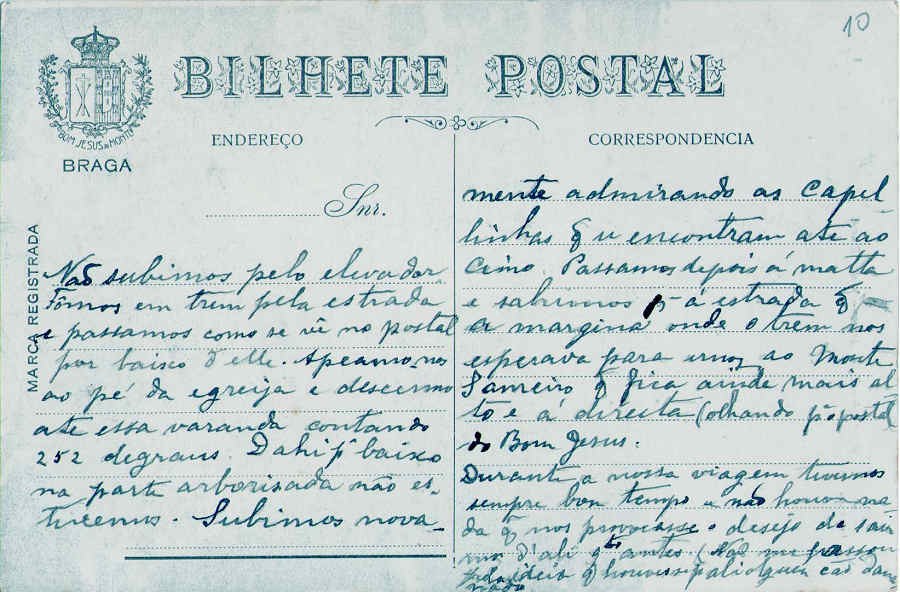 10
BILHETE POSTAL
BOM JESUS DO MONTE
BRAGA
MARCA REGISTRADA
ENDEREÇO
Snr.
Não subimos pelo elevador.
Fômos em trem pela estrada
e passamos como se vê no postal
por baixo d'elle. Apeamo-nos
ao pé da egreija e descemos
até essa varanda contando
252 degraus. Dahi pª baixo
na parte arborisada não es-
tivemos. Subimos nova-
CORRESPONDENCIA
mente admirando as Capel
linhas q se encontram até ao
cimo. Passamos depois á matta
e sahimos pª á estrada q
a margina onde o trem nos
esperava para irmos ao Monte
Sameiro q fica ainda mais al
to e á direita (olhando pª o postal
do Bom Jesus.
Durante a nossa viagem tivemos
sempre bom tempo e não houve na
da q nos provocasse o desejo de sair
mos d'ali qto antes. (Não me passou
pela ideia q houvesse pali alguem